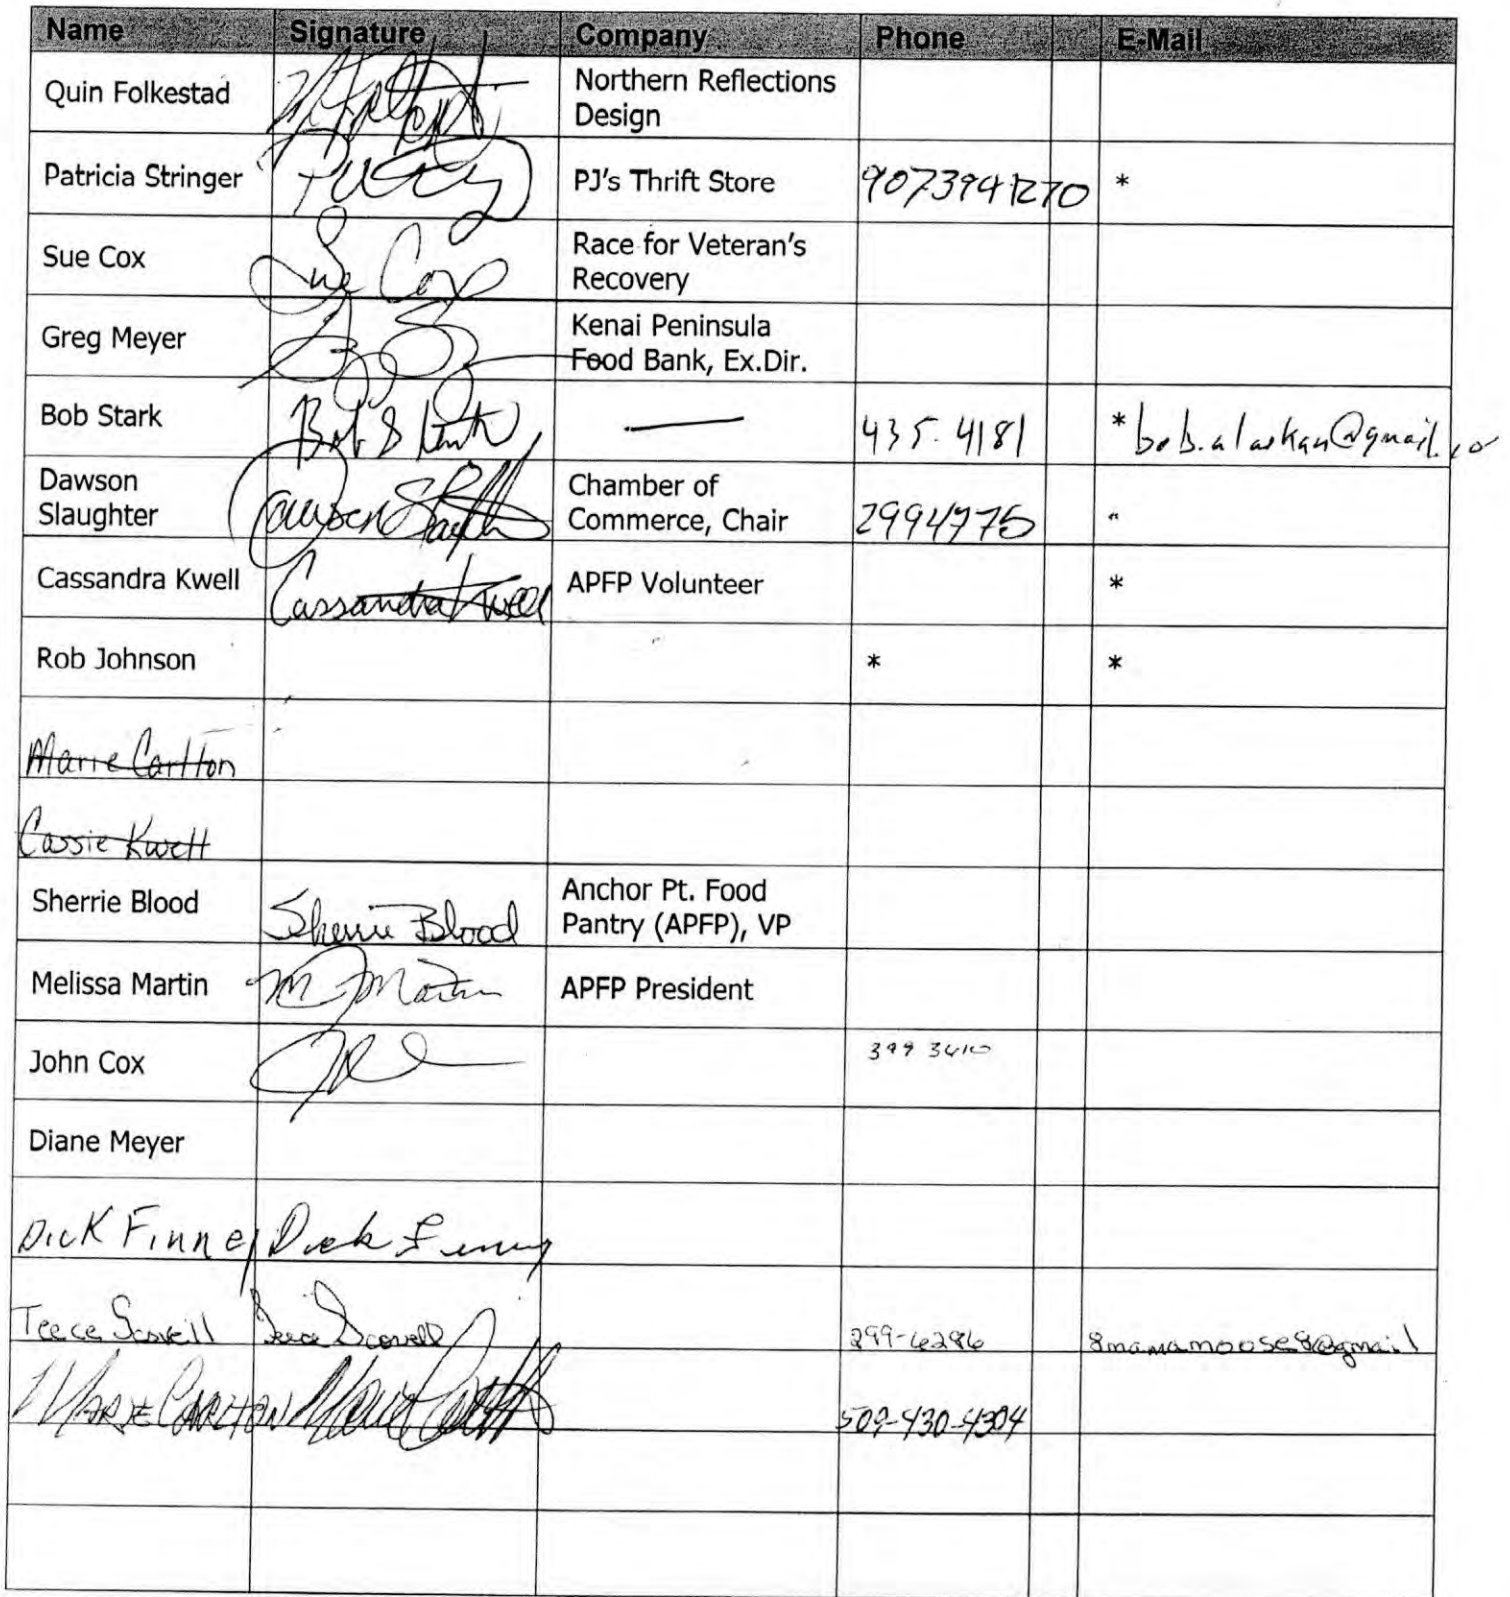 Name Signature Company Phone E-Mail
Quin Folkestad Northern Reflections
Design
Patricia Stringer Patty PJ's Thrift Store 9073941270 *
Sue Cox Sue Cox Race for Veteran's
Recovery
Greg Meyer Kenai Peninsula
Food Bank, Ex.Dir.
Bob Stark Bob S — 435.4181 * bob.alaskan@gmail.co
Dawson
Slaughter Dawson Slaughter Chamber of
Commerce, Chair 2994775 *
Cassandra Kwell Cassandra Kwell APFP Volunteer *
Rob Johnson * *
Marie Carlton
Cassie Kwell
Sherrie Blood Sherrie Blood Anchor Pt. Food
Pantry (APFP), VP
Melissa Martin M Martin APFP President
John Cox 399 3610
Diane Meyer
Dick Finney Dick Finney
Teece Scovell Teece Scovell 299-6286 8mamamoose8@gmail
MARIE CARLTON Marie Carlton 509-430-4304